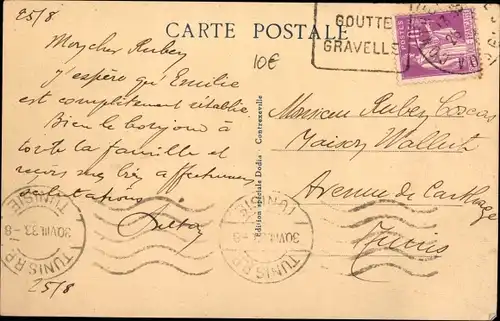 25/8
CARTE POSTALE
10€
GOUTTE
GRAVELLE
POSTES
Mon cher Ruben
J'espère qu'Emilie
est complètement rétablie
Bien le bonjour à
toute la famille et
mes affectueuses
salutations
25/8
Edition spéciale Dodia Contrexeville
Monsieur Ruben
Maison Wallut
Avenue de Carthage
Tunis
TUNIS R.P.
30 VIII 33
TUNISIE
TUNIS R.P.
30 VIII 33-8
TUNISIE